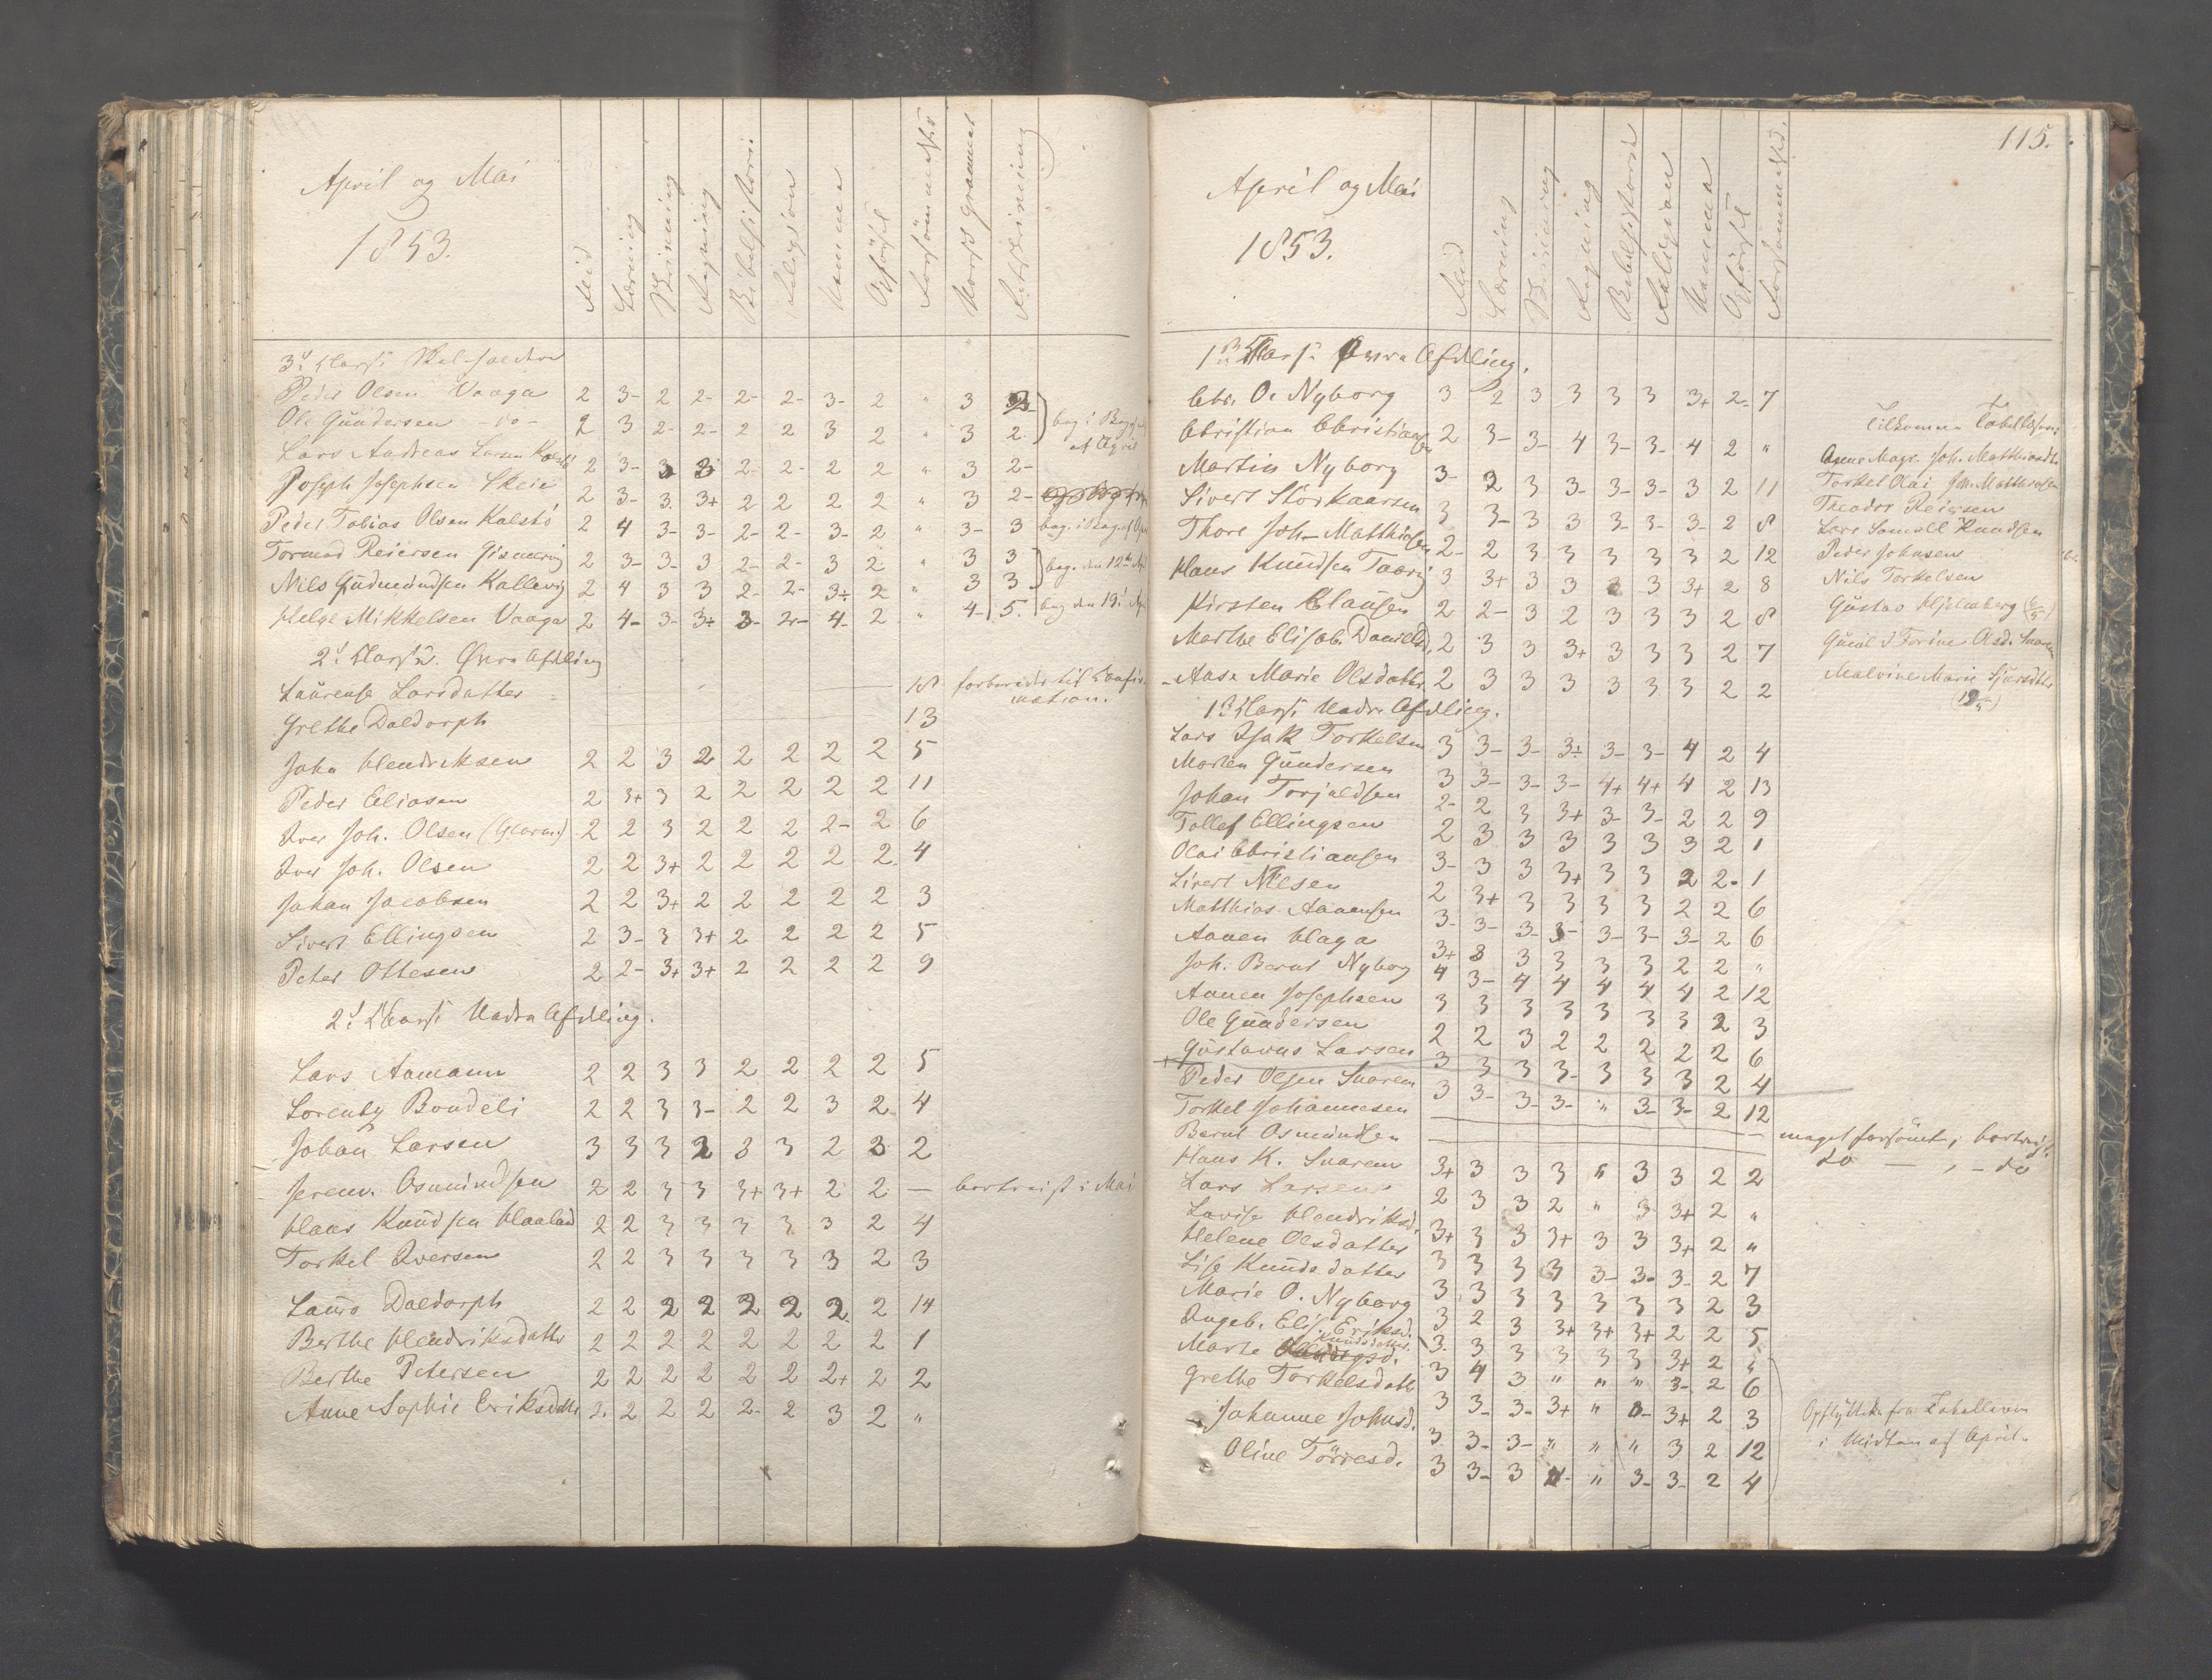 April og Mai
1853.
Flid Læsning Skrivning Regning Bibelhistorie Religion Opførsel Forsømmelser Norsk Gramm. Retskrivning
3die Klasse
Peder Olsen Vaaga 2 3- 2 2- 2- 2- 3- 2 " 3
Ole Gundersen -do- 2 3 2- 2- 2 2 3 2 " 3 2
af April
Lars Andreas Larsen 2 3- 3 3 2- 2- 2 2 " 3 2-
Joseph Josephsen Skeie 2 3- 3 3+ 2 2 2 2 " 3 2-
Peder Tobias Olsen Kalstö 2 4 3- 3- 2- 2- 3- 2 " 3- 3
Tormod Reiersen 2 3- 3- 3 2- 2- 3 2 " 3 3 beg. den 12te
Nils Gudmundsen Kallevig 2 4 3 3 2- 2- 3+ 2 " 3 3
Helge Mikkelsen Vaaga 2 4- 3- 3+ 3- 2- 4- 2 " 4- 5. beg den 19
2d Klasse. Øvre Afdeling
Laurense Larsdatter 18 forbereder til Confirmation.
Grethe Daldorph 13
John Hendriksen 2 2 3 2 2 2 2 2 5
Peder Eliasen 2 3+ 3 2 2 2 2 2 11
Iver Joh. Olsen 2 2 3 2 2 2 2- 2 6
Iver Joh. Olsen 2 2 3+ 2 2 2 2 2 4
Johan Jacobsen 2 2 3+ 2 2 2 2 2 3
Sivert Ellingsen 2 3- 3 3+ 2 2 2 2 5
Peter Ottesen 2 2- 3+ 3+ 2 2 2 2 9
2d Klasse Nedre Afdeling.
Lars Aamann 2 2 3 3 2 2 2 2 5
Lorentz Bondeli 2 2 3 3- 2 2 3 2 4
Johan Larsen 3 3 3 2 3 3 2 3 2
Jerem. Osmundsen 2 2 3 3 3+ 3+ 2 2 — bortreist i Mai
Hans Knudsen Haaland 2 2 3 3 3 3 3 2 4
Torkel Iversen 2 2 3 3 3 3 3 2 3
Laura Daldorph 2 2 2 2 2 2 2 2 14
Berthe Hendriksdatter 2 2 2 2 2 2 2 2 1
Berthe Petersen 2 2 2 2 2 2 2+ 2 2
Anne Sophie Eriksdatter 2. 2 2 2 2- 2 3 2 "
115.
April og Mai
1853.
Flid Læsning Skrivning Regning Bibelhistorie Religion Opførsel Forsømmelser
1ste Klasse Øvre Afdeling.
Chr. O. Nyborg 3 2 3 3 3 3 3+ 2- 7
Christian Christiansen 2 3- 3- 4 3- 3- 4 2 "
Martin Nyborg 3- 2 3 3- 3- 3- 3 2 11
Sivert Störkaarsen 3 3- 3 3 3- 3- 3- 2 8
Thore Joh. Matthiasen 2- 2 3 3 3 3 3 2 12
Hans Knudsen 3 3+ 3 3 3 3+ 2 8
Kirsten Clausen 2 2- 3 2 3 3 3 2 8
Marthe Elisab. Danielsd. 2 3 3 3+ 3 3 3 2 7
Aase Marie Olsdatter 2 3 3 3 3 3 3 2 2
1ste Klasse Nedre Afdeling.
Lars Isak Torkelsen 3 3- 3- 3+ 3- 3- 4 2 4
Morten Gundersen 3 3- 3- 3- 4+ 4+ 4 2 13
Johan Torjuldsen 2- 2 3 3+ 3- 3- 2 2 9
Tollef Ellingsen 2 3 3 3 3 3 3 2 1
Olai Christiansen 3- 3 3 3+ 3 3 2 2 1
Sivert Nilsen 2 3+ 3 3 3 3 2 2 6
Matthias Aanensen 3- 3- 3- 3- 3- 3- 3- 2 6
Aanen Haga 3+ 3 3 3 3 3 2 2 "
Joh. Bernt Nyborg 4 3- 4 4 4 4 4 2 12
Aanen Josephsen 3 3 3 3 3 3 3 2 3
Ole Gundersen 2 2 3 2 2 2 2 2 6
Gustavus Larsen 3 3 3 3- 3 3 3 2 4
Peder Olsen Snarem 3 3- 3- 3- " 3- 3- 2 12
Torkel Johannesen meget forsömt, bortreist.
Bernt Osmundsen do — , — do
Hans K. Snarem 3+ 3 3 3 " 3 3 2 2
Lars Larsen 2 3 3 2 " 3 3+ 2 "
Lovise Hendriksd. 3+ 3 3 3+ 3 3 3+ 2 "
Helene Olsdatter 3 3 3 3 3- 3- 3- 2 7
Lise Knudsdatter 3 3 3 3 3 3 3 2 3
Marie O. Nyborg 3 2 3 3+ 3+ 3+ 2 2 5
Ingeb. Elis. Eriksd. 3. 3 3 3 3 3 3+ 2 5
Marte Knudsdatter. 3 4 3 " " " 3- 2 6
Grethe Torkelsdatt 3 3- 3- 3+ " 3- 3+ 2 3
Johanne Johnsd. 3 3- 3- " " " 3 2 12
Oline Törresd. 3 3- 3 4- " 3- 3- 2 4
Tilkomne
Anne Magr. Joh. Matthiasdtr
Torkel Olai Joh. Matthiasen
Theodor Reiersen
Lars Samuel Knudsen
Peder Johnsen
Nils Torkelsen
Gustav Hjelmberg
Malvine Marie
Opflyttede fra Tabellerne
i Midten af April.